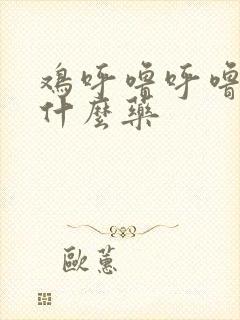 鸡呼噜呼噜
什麼藥
歐蕙